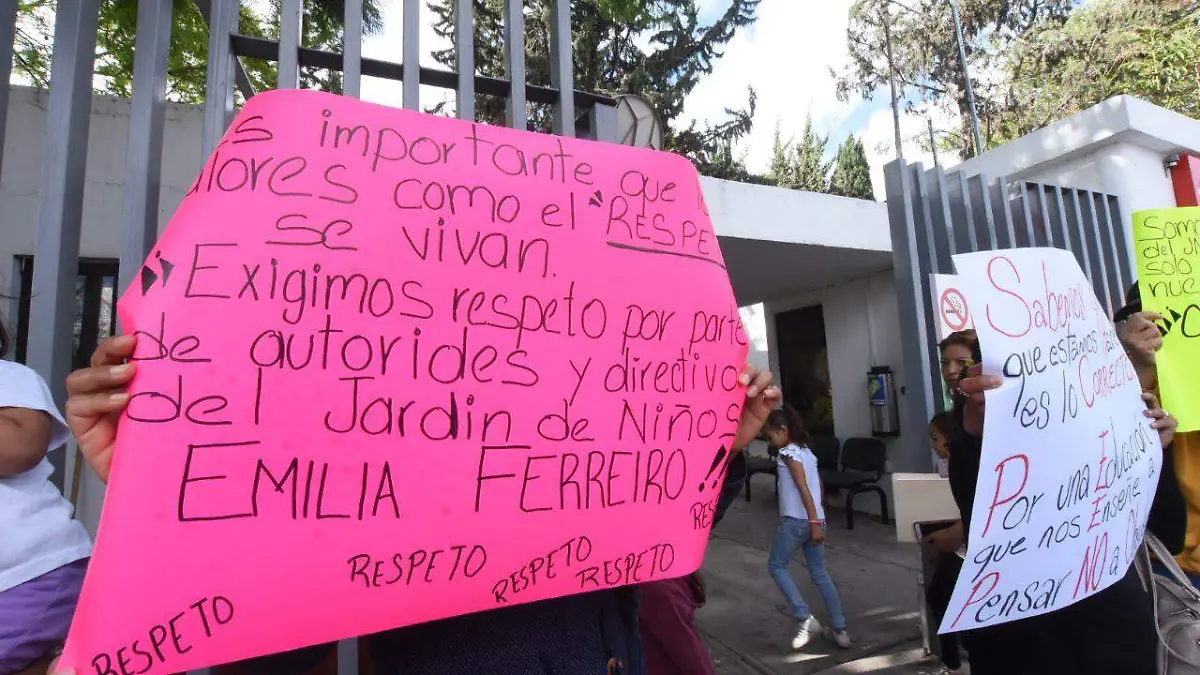 Es importante que lo
valores como el "RESPE
se vivan.
"Exigimos respeto por parte
de autorides y directivo
del Jardin de Niños
EMILIA FERREIRO"!!
RESPETO
RESPETO
RESPETO
RESPETO
RES
Sabemos
que estamos
es lo Correct
Por una Educación
que nos Enseñe a
Pensar NO a
del
solo
nue